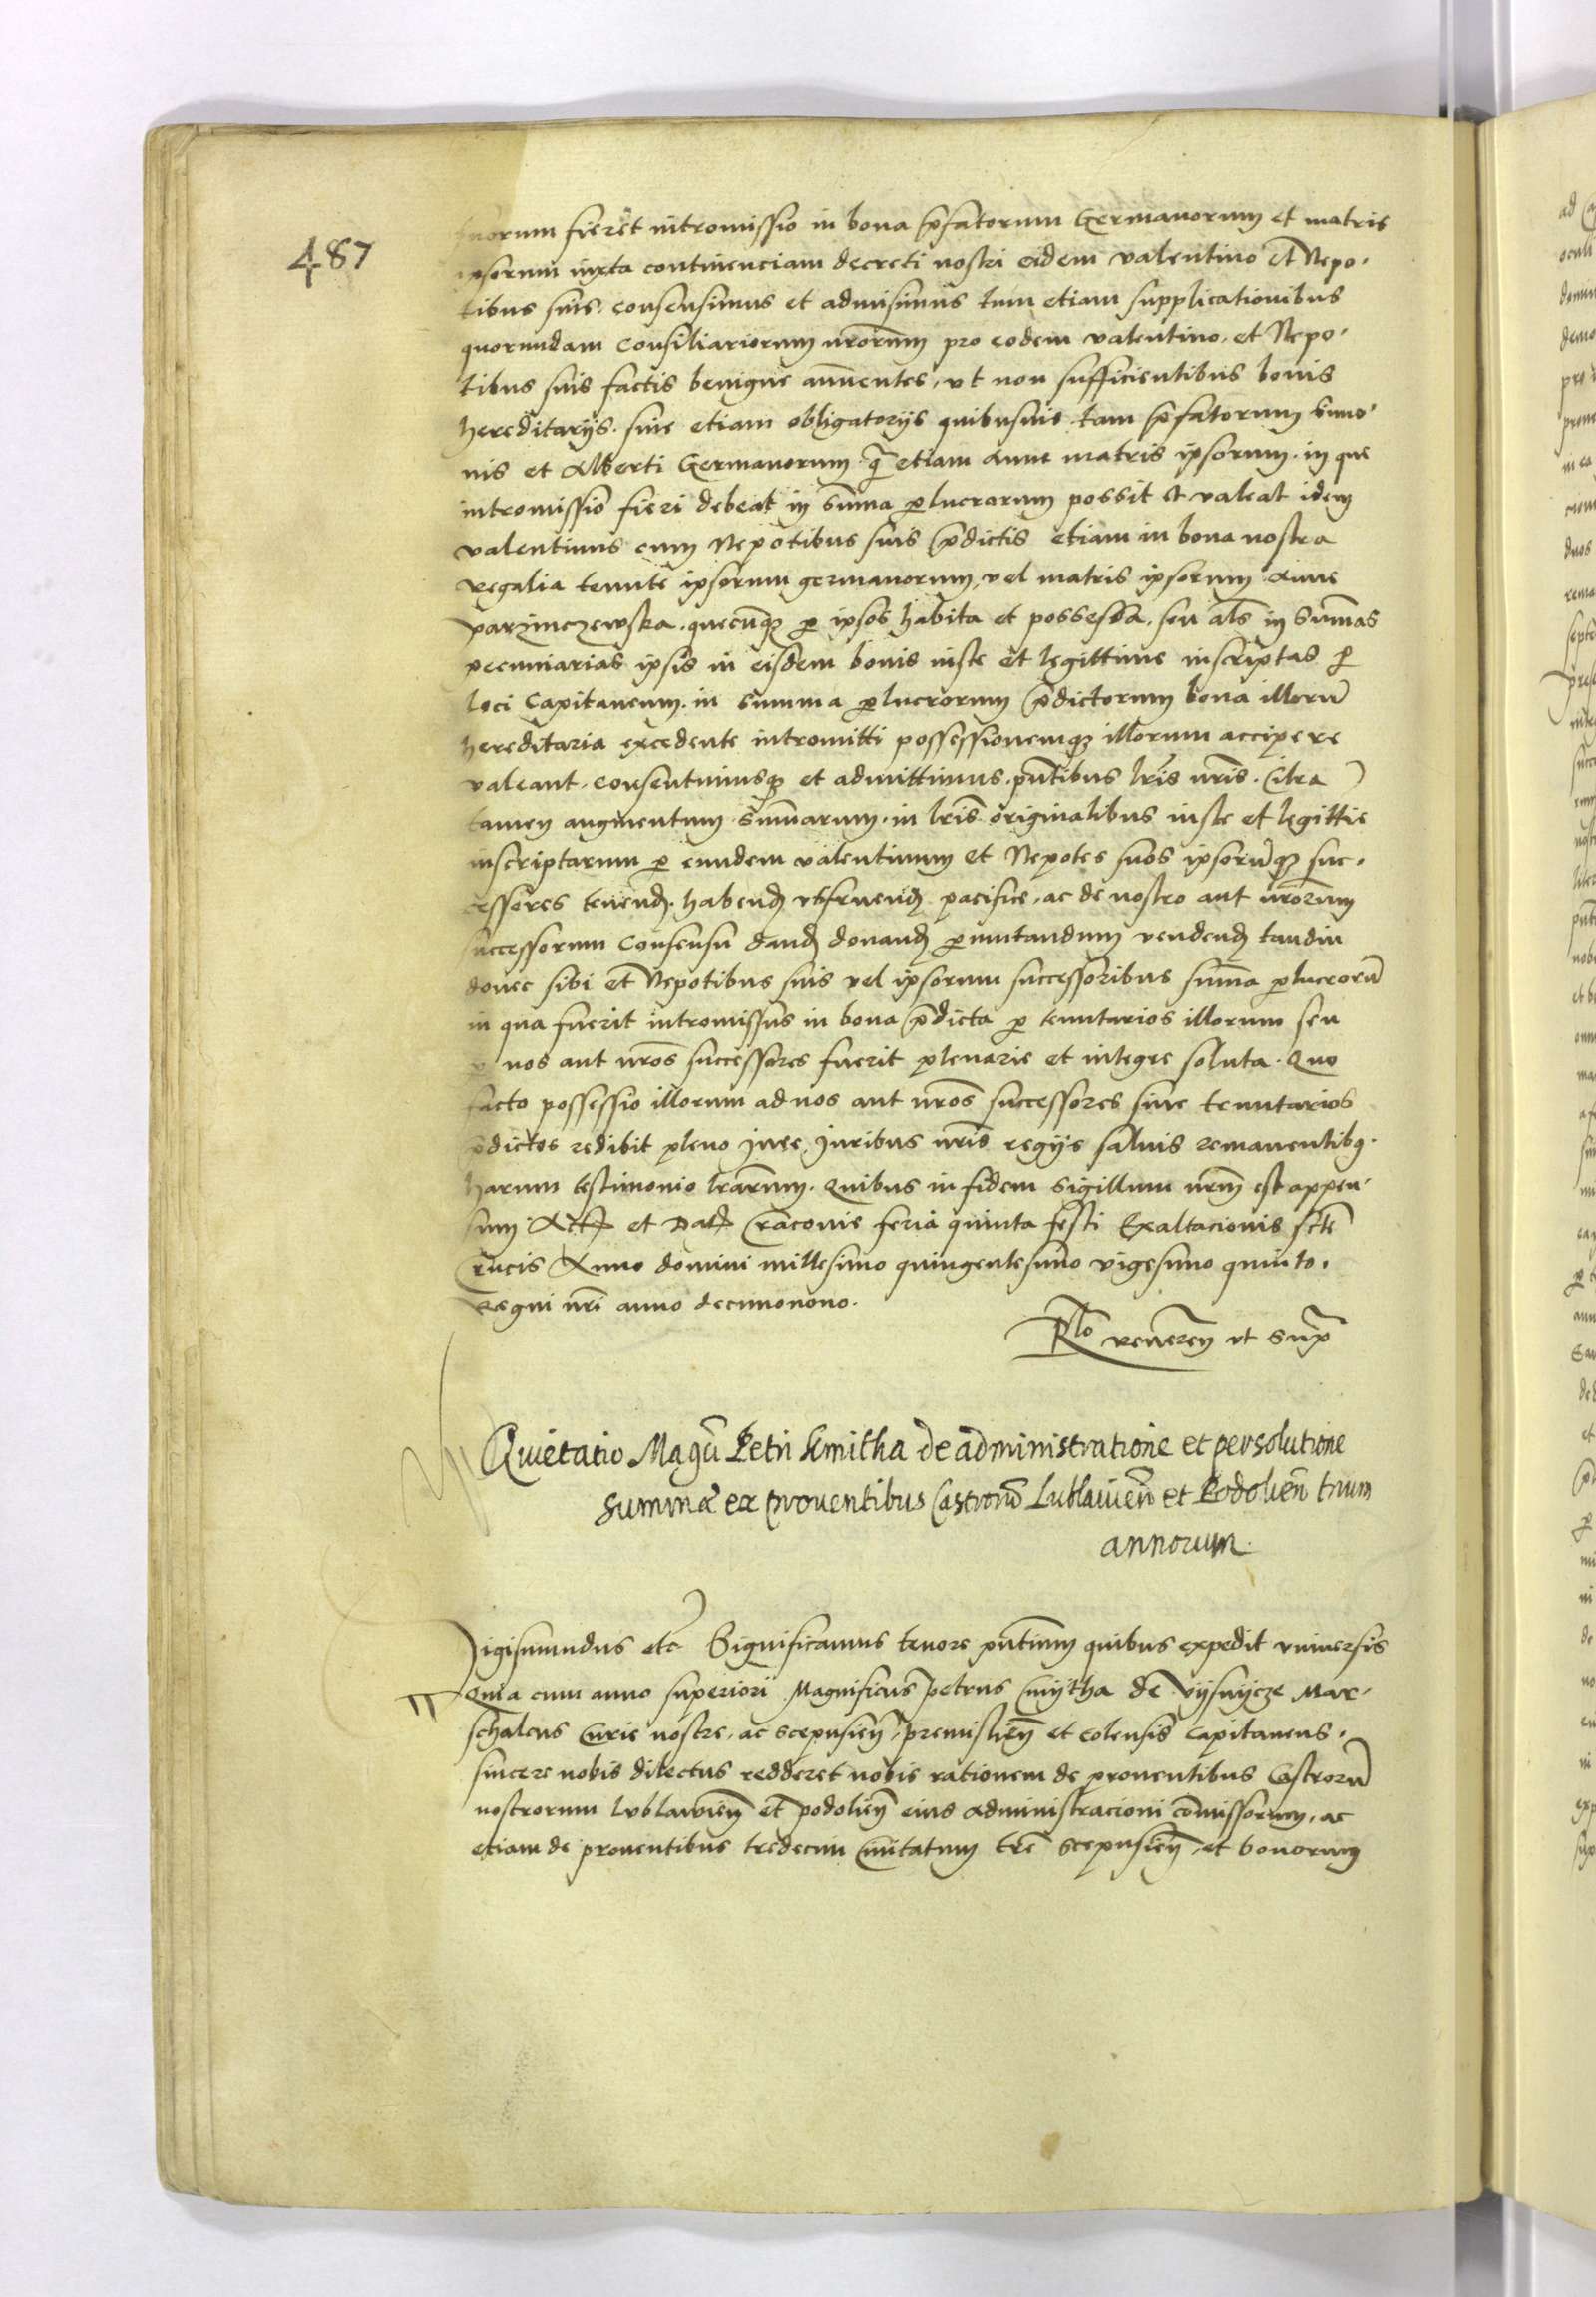 487
suorum fieret intromissio in bona p̃fatorum Germanorum et matris
ipsorum iuxta continenciam decreti nostri eidem valentino et Nepo⸗
tibus suis consensimus et admisimus tum etiam supplicationibus
quorundam Consiliariorum nr̃orum pro eodem valentino et Nepo⸗
tibus suis factis benigne annuentes, vt non sufficientibus bonis
hereditarijs siue etiam obligatorijs quibusuis tam p̃fatorum Simo⸗
nis et Alberti Germanorum q̃ etiam Anne matris ipsorum in que
intromissio fieri debeat in sum̃a ꝑlucrorum possit et valeat idem
valentinus cum Nepotibus suis p̃dictis etiam in bona nostra
regalia tenute ipsorum germanorum, vel matris ipsorum Anne
parzinczewska quecunqꝫ ꝑ ipsos habita et possessa, seu als̃ in Sum̃as
pecuniarias ipsis in eisdem bonis iuste et legittime inscriptas ꝑ
loci Capitaneum in summa ꝑlucrorum p̃dictorum bona illorũ
hereditaria excedente intromitti possessionemqꝫ illorum accipere
valeant Consentimusqꝫ et admittimus pñtibus lr̃is nr̃is. Citra
tamen augmentum Sum̃arum in lr̃is originalibus iuste et legittie
inscriptarum ꝑ eundem valentinum et Nepotes suos ipsorũqꝫ suc⸗
cessores tenend̃ habend̃ vtifruend̃ pacifice, ac de nostro aut nr̃orum
successorum Consensu dand̃ donand̃ ꝑmutandum vendend̃ tamdiu
donec sibi et Nepotibus suis vel ipsorum successoribus sum̃a ꝑlucrorũ
in qua fuerit intromissus in bona p̃dicta ꝑ tenutarios illorum seu
ꝑ nos aut nr̃os successores fuerit plenarie et integre soluta. Quo
facto possessio illorum ad nos aut nr̃os successores siue tenutarios
p̃dictos redibit pleno iure, Juribus nr̃is regijs saluis remanentibꝫ
harum testimonio lr̃arum. Quibus in fidem Sigillum nr̃m est appen⸗
sum Act̃ et Dat̃ Cracouie feria quinta festi Exaltacionis sct̃e
Crucis Anno domini millesimo quingentesimo vigesimo quinto.
Regni nr̃i anno decimonono.
Rl̃o reueren̄ vt sup̃
Quietatio Mag̃ci Petri Kmitha de administratione et persolutione
Summæ ex prouentibus Castrorũ Lublauien̄ et Podolien̄ trium
annorum.
Sigismundus etc̃ Significamus tenore pñtium quibus expedit vniuersis
Quia cum anno superiori Magnificus petrus Cmytha de vijsnijcze Mar⸗
schalcus Curie nostre, ac scepusien̄, premislien̄ et Colensis Capitaneus,
sincere nobis dilectus redderet nobis rationem de prouentibus Castrorũ
nostrorum lvblawien̄ et podolien̄ eius administracioni com̃issorum, ac
etiam de prouentibus tredecim Ciuitatum terr̃ Scepusien̄, et bonorum